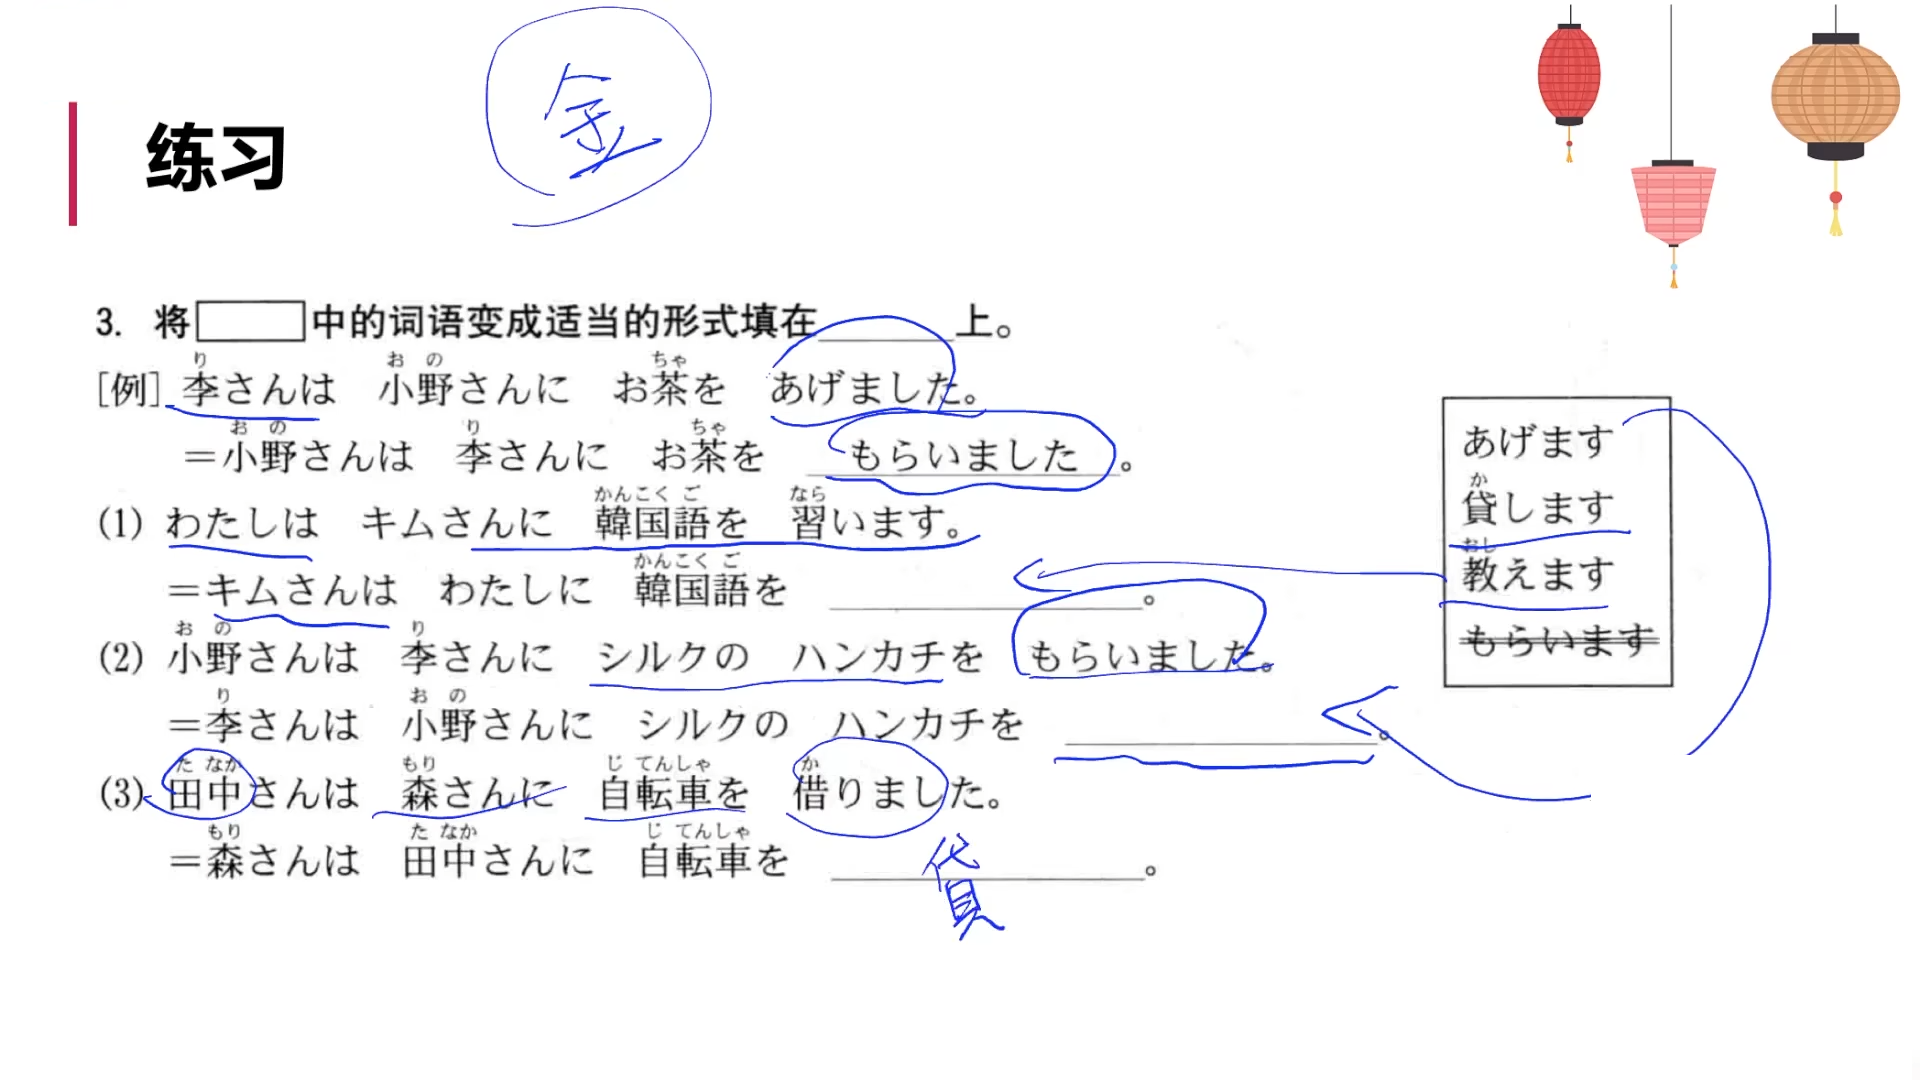 金
练习
3. 将 中的词语变成适当的形式填在______上。
り お の ちゃ
[例] 李さんは 小野さんに お茶を あげました。
お の り ちゃ
＝小野さんは 李さんに お茶を もらいました。
かんこく ご なら
(1) わたしは キムさんに 韓国語を 習います。
かんこく ご
＝キムさんは わたしに 韓国語を ______。
お の り
(2) 小野さんは 李さんに シルクの ハンカチを もらいました。
り お の
＝李さんは 小野さんに シルクの ハンカチを ______。
た なか もり じ てんしゃ か
(3) 田中さんは 森さんに 自転車を 借りました。
もり た なか じ てんしゃ
＝森さんは 田中さんに 自転車を ______。
貸
あげます
か
貸します
おし
教えます
もらいます